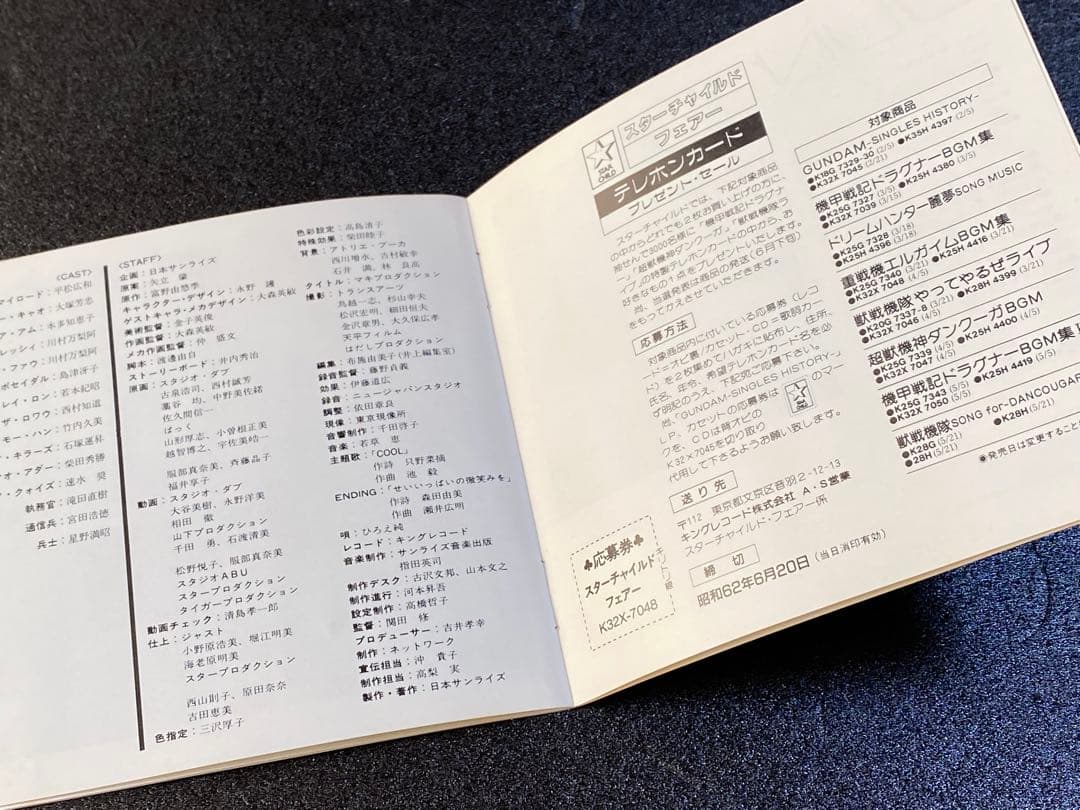 〈CAST〉
アイロード：平松広和
ー・キャオ：大塚芳忠
ア・アム：本多知恵子
レッシィ：川村万梨阿
・ファウ：川村万梨阿
ポセイダル：島津冴子
レイ・ロン：若本紀昭
ザ・ロワウ：西村知道
モー・ハン：竹内久美
・キラーズ：石塚運昇
オ・アダー：柴田秀勝
・クォイズ：速水 奨
執務官：滝田直樹
通信兵：宮田浩徳
兵士：星野満昭
〈STAFF〉
企画：日本サンライズ
原案：矢立 肇
原作：富野由悠季
キャラクター・デザイン：永野 護
ゲストキャラ・メカデザイン：大森英敏
美術監督：金子英俊
作画監督：大森英敏
メカ作画監督：仲 盛文
脚本：渡邊由自
ストーリーボード：井内秀治
原画：スタジオ・ダブ
古泉浩司、西村誠芳
藁谷 均、中野美佐緒
佐久間信一
ばっく
山形厚志、小曽根正美
越智博之、宇佐美皓一
服部真奈美、斉藤晶子
福井享子
動画：スタジオ・ダブ
大谷美樹、永野洋美
相田 徹
山下プロダクション
千田 勇、石渡清美
松野悦子、服部真奈美
スタジオABU
スタープロダクション
タイガープロダクション
動画チェック：清島孝一郎
仕上：ジャスト
小野原浩美、堀江明美
海老原明美
スタープロダクション
西山則子、原田奈奈
吉田恵美
色指定：三沢厚子
色彩設定：高島清子
特殊効果：柴田睦子
背景：アトリエ・ブーカ
西川増水、吉村敏幸
石井 満、林 良高
タイトル：マキプロダクション
撮影：トランスアーツ
鳥越一志、杉山幸夫
松沢宏明、細田恒夫
金沢章男、大久保広孝
天平フィルム
はだしプロダクション
編集：布施由美子(井上編集室)
録音監督：藤野貞義
効果：伊藤道広
録音：ニュージャパンスタジオ
調整：依田章良
現像：東京現像所
音響制作：千田啓子
音楽：若草 恵
主題歌：「COOL」
作詩 只野菜摘
作曲 池 毅
ENDING：「せいいっぱいの微笑みを」
作詩 森田由美
作曲 瀬井広明
唄：ひろえ純
レコード：キングレコード
音楽制作：サンライズ音楽出版
指田英司
制作デスク：古沢文邦、山本文之
制作進行：河本昇吾
設定制作：高橋哲子
監督：関田 修
プロデューサー：古井孝幸
制作：ネットワーク
宣伝担当：沖 貴子
制作担当：高梨 実
製作・著作：日本サンライズ
STAR CHILD
スターチャイルド
フェアー
テレホンカード
プレゼント・セール
スターチャイルドでは、下記対象商品
の中からどれでも2枚お買い上げの方に、
抽せんで3000名様に「機甲戦記ドラグナ
ー」「超獣機神ダンクーガ」「獣戦機隊ラ
イブ」の特製テレホンカードの中から、お
好きなもの1点をプレゼントいたします。
当選発表は商品の発送(6月下旬)
をもってかえさせていただきます。
応募方法
対象商品内に付いている応募券(レコ
ード=オビ裏/カセット・CD=歌詞カー
ド)を2枚集めてハガキに貼布し、住所、
氏名、年令、希望テレホンカード名を必
ず明記のうえ、下記宛ご応募下さい。
尚、「GUNDAM-SINGLES HISTORY-」
LP、カセットの応募券は のマー
クを、CDは背オビの
K32X7045を切り取り
代用して下さるようお願い致します。
送り先
〒112 東京都文京区音羽2-12-13
キングレコード株式会社 A・S営業
スターチャイルド・フェアー係
締切
昭和62年6月20日(当日消印有効)
♣応募券♣
スターチャイルド
フェアー
K32X-7048
キリトリ線
対象商品
GUNDAM-SINGLES HISTORY-
●K18G 7329-30 (2/5) ●K35H 4397 (2/5)
●K32X 7045 (2/21)
機甲戦記ドラグナーBGM集
●K25G 7327 (3/5) ●K25H 4380 (3/5)
●K32X 7039 (3/15)
ドリームハンター麗夢SONG MUSIC
●K25G 7328 (3/18)
●K25H 4396 (3/18)
重戦機エルガイムBGM集
●K25G 7340 (3/21) ●K25H 4416 (3/21)
●K32X 7048 (4/5)
獣戦機隊やってやるぜライブ
●K20G 7337-8 (3/21) ●K28H 4399 (3/21)
●K32X 7046 (4/5)
超獣機神ダンクーガBGM
●K25G 7339 (4/5) ●K25H 4400 (4/5)
●K32X 7047 (4/5)
機甲戦記ドラグナーBGM集
●K25G 7343 (5/5) ●K25H 4419 (5/5)
●K32X 7050 (5/5)
獣戦機隊SONG for-DANCOUGAR
●K28G (5/21) ●K28H (5/21)
●28H (5/21)
◉発売日は変更すること